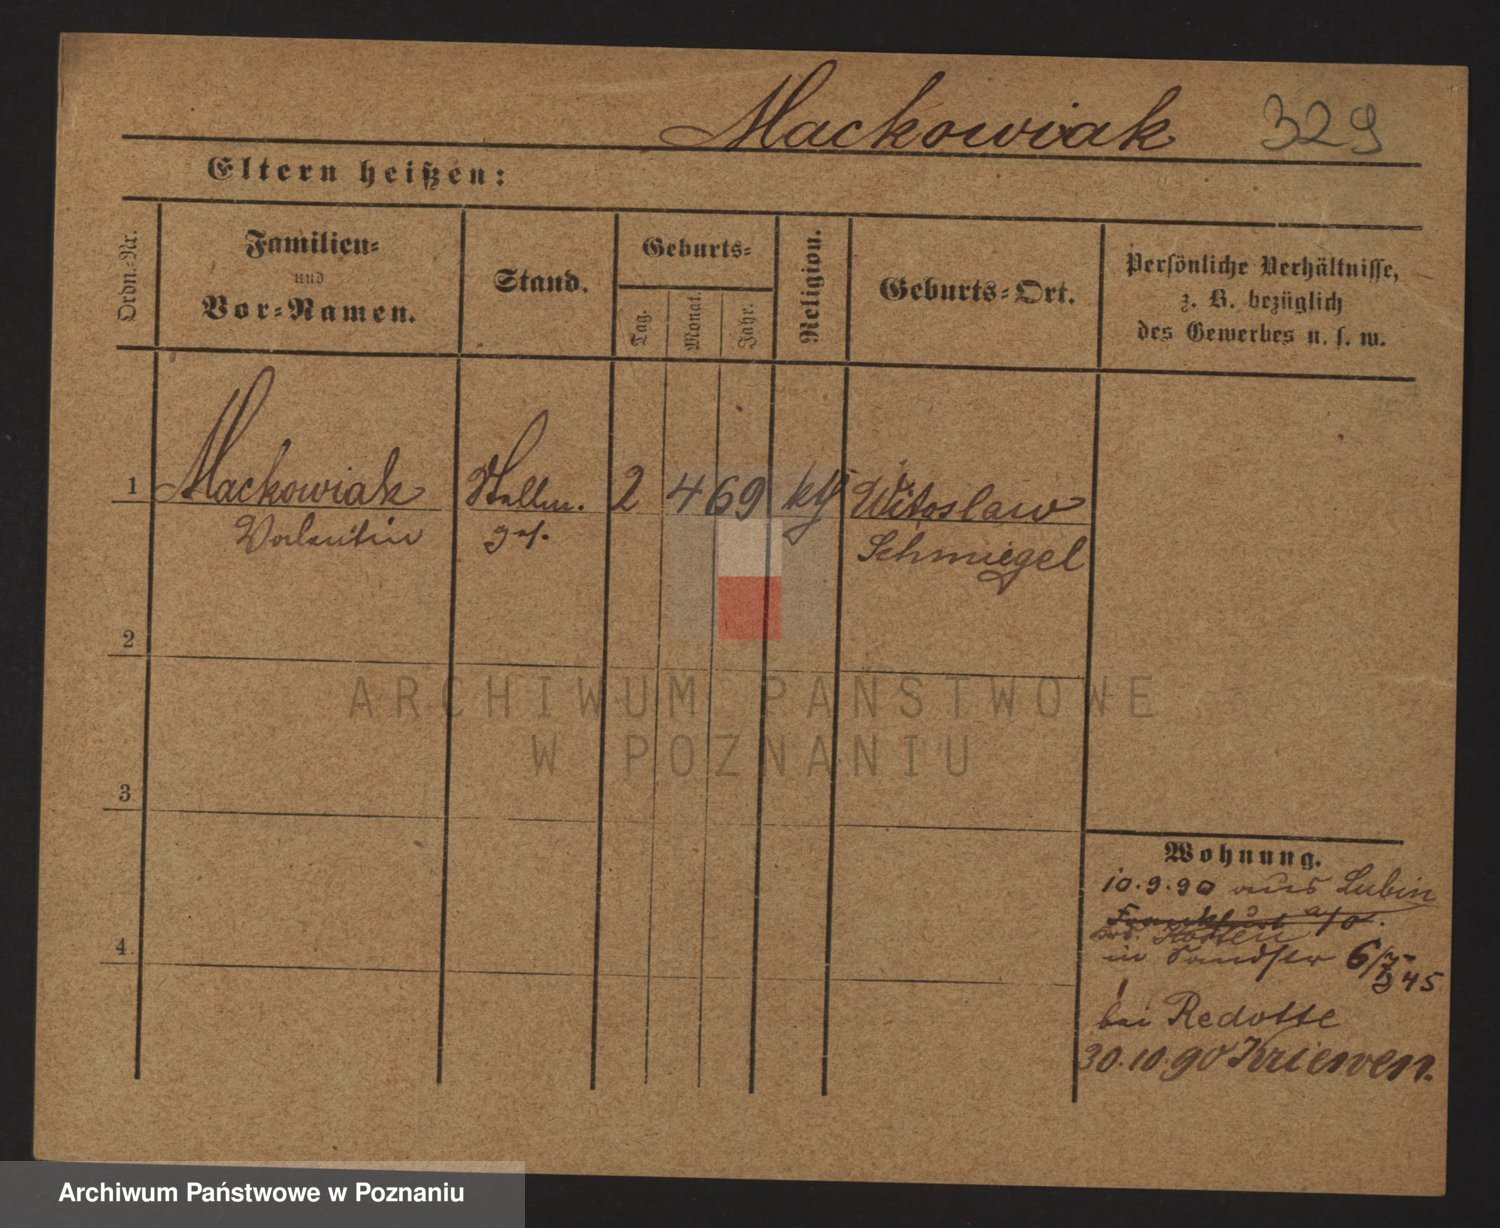 Mackowiak 329
Eltern heißen:
Ordn.-Nr.
Familien-
und
Vor-Namen.
Stand.
Geburts-
Tag.
Monat.
Jahr.
Religion.
Geburts-Ort.
Persönliche Verhältnisse,
z. B. bezüglich
des Gewerbes u. s. w.
1 Mackowiak Stellm. 2 4 69 kth Witoslaw
Valentin ges. Schmiegel
2
3
4
Wohnung.
10.9.90 aus Lubin
Frankfurt a/o.
Krs. Kosten
in Sandstr 6/7
345
bei Redotte
30.10.90 Kriewen.
ARCHIWUM PAŃSTWOWE
W POZNANIU
Archiwum Państwowe w Poznaniu